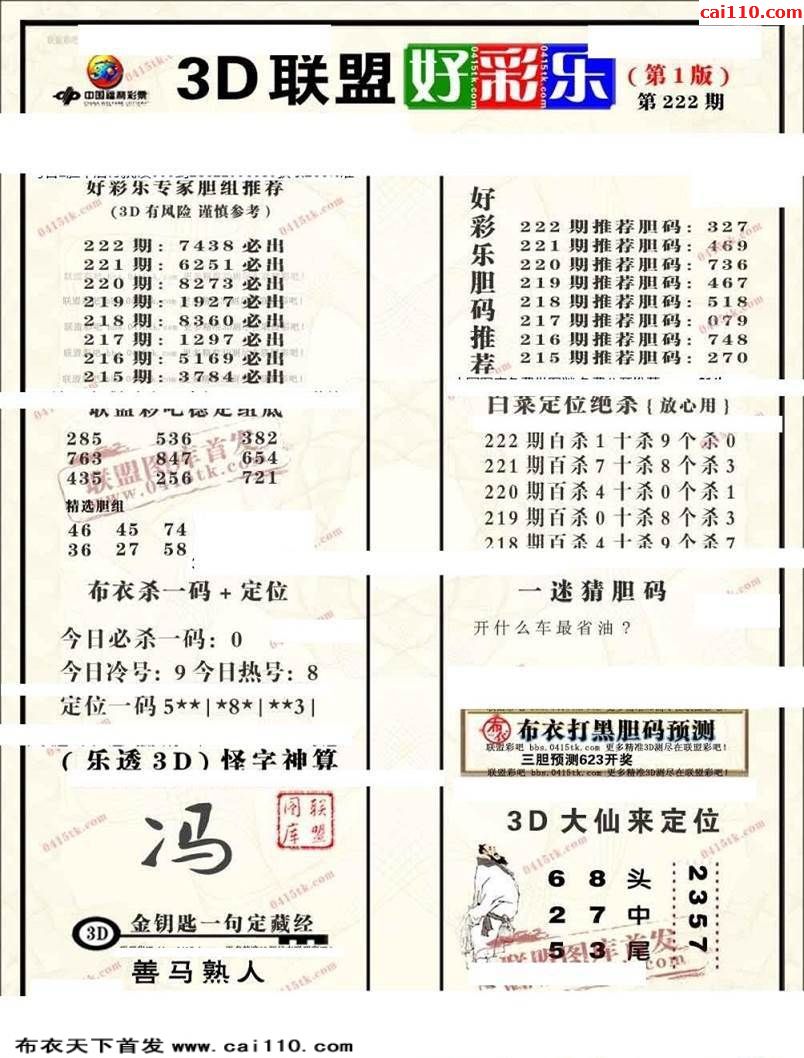 cai110.com
联盟彩吧
中国福利彩票
CHINA WELFARE LOTTERY
3D联盟好彩乐
(第1版)
第222期
好彩乐专家胆组推荐
(3D有风险 谨慎参考)
222期:7438必出
221期:6251必出
220期:8273必出
219期:1927必出
218期:8360必出
217期:1297必出
216期:5169必出
215期:3784必出
好彩乐胆码推荐
222期推荐胆码:327
221期推荐胆码:469
220期推荐胆码:736
219期推荐胆码:467
218期推荐胆码:518
217期推荐胆码:079
216期推荐胆码:748
215期推荐胆码:270
联盟彩吧稳定组底
285 536 382
763 847 654
435 256 721
联盟图库首发
www.0415tk.com
精选胆组
46 45 74
36 27 58
白菜定位绝杀{放心用}
222期百杀1十杀9个杀0
221期百杀7十杀8个杀3
220期百杀4十杀0个杀1
219期百杀0十杀8个杀3
218期百杀4十杀9个杀7
布衣杀一码+定位
今日必杀一码:0
今日冷号:9今日热号:8
定位一码5**|*8*|**3|
一迷猜胆码
开什么车最省油?
布衣打黑胆码预测
联盟彩吧 bbs.0415tk.com 更多精准3D测尽在联盟彩吧!
三胆预测623开奖
联盟彩吧 bbs.0415tk.com 更多精准3D测尽在联盟彩吧!
(乐透3D)怪字神算
冯
联盟图库
3D
金钥匙一句定藏经
善马熟人
3D大仙来定位
6 8 头
2 7 中
5 3 尾
2357
联盟图库首发
布衣天下首发 www.cai110.com